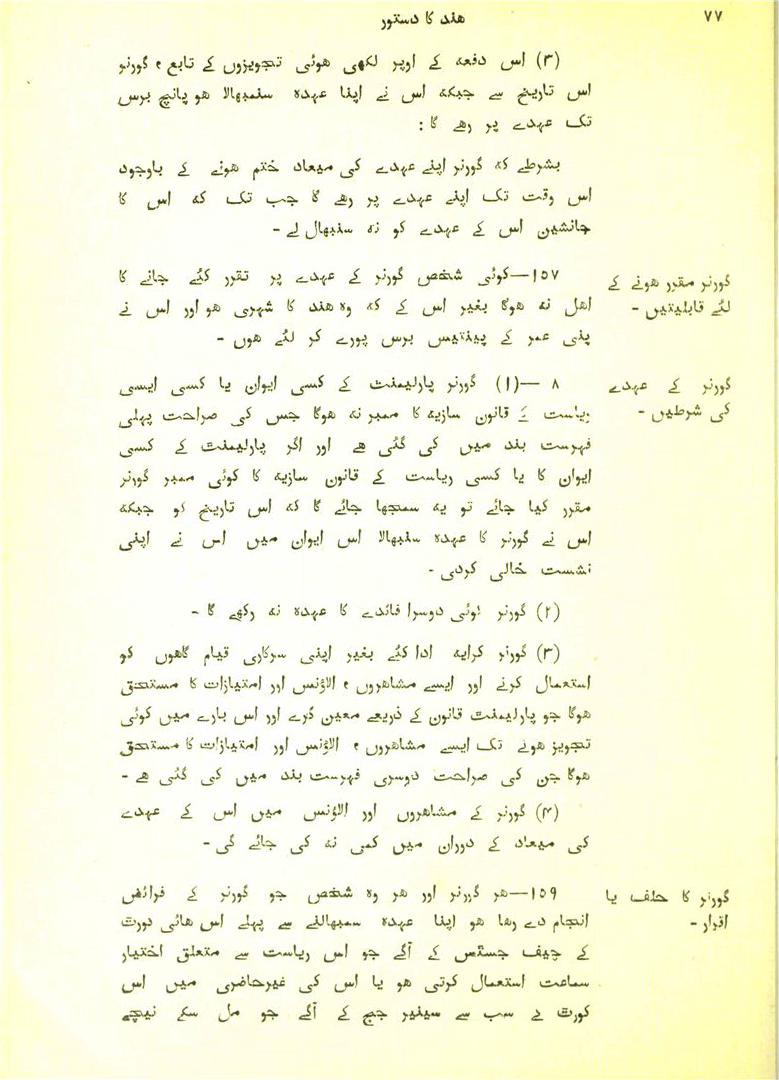 ۷۷
هند کا دستور
(۳) اس دفعہ کے اوپر لکھی ہوئی تجویزوں کے تابع ، گورنر
اس تاریخ سے جبکہ اس نے اپنا عہدہ سنمبھالا ہو پانچ برس
تک عہدے پر رہے گا :
بشرطے کہ گورنر اپنے عہدے کی میعاد ختم ہونے کے باوجود
اس وقت تک اپنے عہدے پر رہے گا جب تک کہ اس کا
جانشین اس کے عہدے کو نہ سنبھال لے -
گورنر مقرر ہونے کے
لئے قابلیتیں -
۱۵۷—کوئی شخص گورنر کے عہدے پر تقرر کئے جانے کا
اہل نہ ہوگا بغیر اس کے کہ وہ ہند کا شہری ہو اور اس نے
پنی عمر کے پینتیس برس پورے کر لئے ہوں -
گورنر کے عہدے
کی شرطیں -
۸ —(۱) گورنر پارلیمنٹ کے کسی ایوان یا کسی ایسی
ریاست کے قانون سازیہ کا ممبر نہ ہوگا جس کی صراحت پہلی
فہرست بند میں کی گئی ہے اور اگر پارلیمنٹ کے کسی
ایوان کا یا کسی ریاست کے قانون سازیہ کا کوئی ممبر گورنر
مقرر کیا جائے تو یہ سمجھا جائے گا کہ اس تاریخ کو جبکہ
اس نے گورنر کا عہدہ سنبھالا اس ایوان میں اس نے اپنی
نشست خالی کردی -
(۲) گورنر کوئی دوسرا فائدے کا عہدہ نہ رکھے گا -
(۳) گورنر کرایہ ادا کئے بغیر اپنی سرکاری قیام گاہوں کو
استعمال کرنے اور ایسے مشاہروں ، الاؤنس اور امتیازات کا مستحق
ہوگا جو پارلیمنٹ قانون کے ذریعے معین کرے اور اس بارے میں کوئی
تجویز ہونے تک ایسے مشاہروں ، الاؤنس اور امتیازات کا مستحق
ہوگا جن کی صراحت دوسری فہرست بند میں کی گئی ہے -
(۴) گورنر کے مشاہروں اور الاؤنس میں اس کے عہدے
کی میعاد کے دوران میں کمی نہ کی جائے گی -
گورنر کا حلف یا
اقرار -
۱۵۹—ہر گورنر اور ہر وہ شخص جو گورنر کے فرائض
انجام دے رہا ہو اپنا عہدہ سمبھالنے سے پہلے اس ہائی کورٹ
کے چیف جسٹس کے آگے جو اس ریاست سے متعلق اختیار
سماعت استعمال کرتی ہو یا اس کی غیرحاضری میں اس
کورٹ کے سب سے سینیر جج کے آگے جو مل سکے نیچے